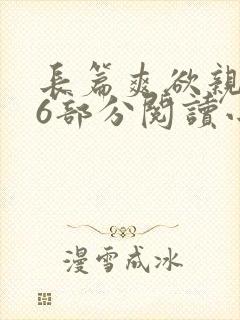 長篇爽欲親
6部分閱讀
漫雪成冰